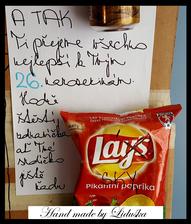 A TAK
Ti přejeme všechno
nejlepší k Tvým
26. narozeninám.
Hodně
štěstí,
zdravíčka
ať Tvé
srdíčko
ještě
Lay's
SKY
Pikantní paprika
Hand made by Liduska